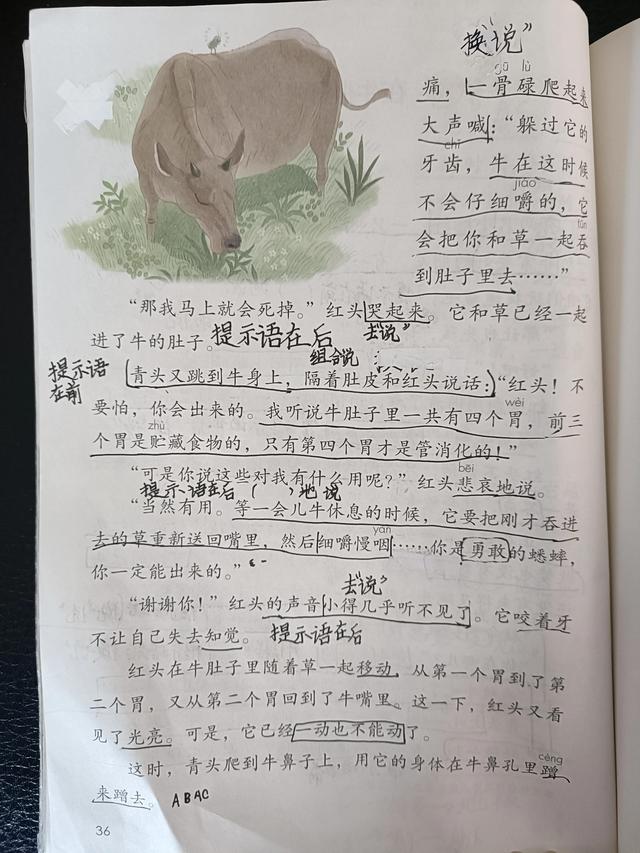 换“说”
gū lù
痛，一骨碌爬起来
大声喊：“躲过它的
chǐ
牙齿，牛在这时候
jiáo
不会仔细嚼的，它
tūn
会把你和草一起吞
到肚子里去……”
“那我马上就会死掉。”红头哭起来。它和草已经一起
进了牛的肚子。提示语在后 去“说”
提示语在前
组合说
青头又跳到牛身上，隔着肚皮和红头说话：“红头！不
wèi
要怕，你会出来的。我听说牛肚子里一共有四个胃，前三
zhù
个胃是贮藏食物的，只有第四个胃才是管消化的！”
bēi
“可是你说这些对我有什么用呢？”红头悲哀地说。
提示语在后（ ）地说
“当然有用。等一会儿牛休息的时候，它要把刚才吞进
yàn
去的草重新送回嘴里，然后细嚼慢咽……你是勇敢的蟋蟀，
你一定能出来的。”
去“说”
“谢谢你！”红头的声音小得几乎听不见了。它咬着牙
不让自己失去知觉。 提示语在后
红头在牛肚子里随着草一起移动，从第一个胃到了第
二个胃，又从第二个胃回到了牛嘴里。这一下，红头又看
见了光亮。可是，它已经一动也不能动了。
cèng
这时，青头爬到牛鼻子上，用它的身体在牛鼻孔里蹭
来蹭去。 ABAC
36